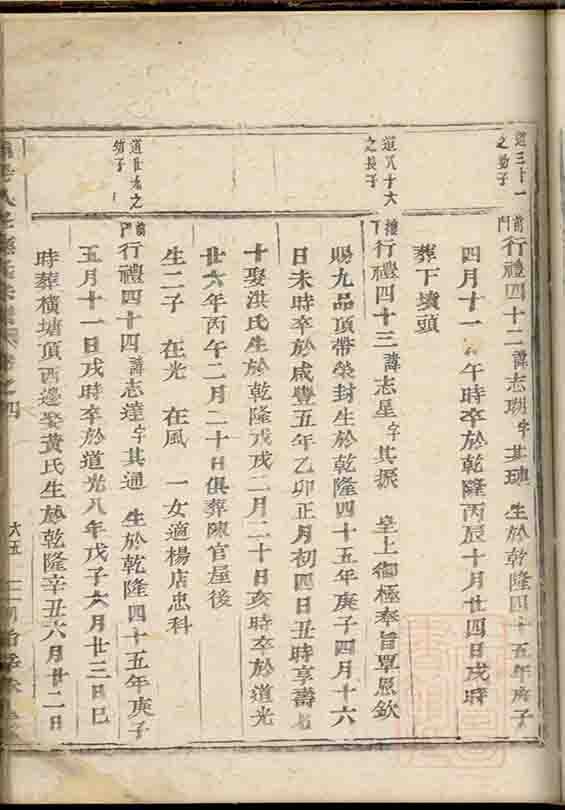 道三十一
之幼子
前門行禮四十二諱志珙字其璉 生於乾隆四十五年庚子
四月十一 午時卒於乾隆丙辰十月廿四日戌時
葬下墳頭
道八十六
之長子
行禮四十三諱志星字其振 皇上御極奉旨覃恩欽
賜九品頂帶榮封生於乾隆四十五年庚子四月十六
日未時卒於咸豐五年乙卯正月初四日丑時享壽七
十娶洪氏生於乾隆戊戌二月二十日亥時卒於道光
廿六年丙午二月二十日俱葬陳官屋後
生二子 在光 在風 一女適楊店忠科
道世 之
幼子
前門行禮四十四諱志達字其通 生於乾隆四十五年庚子
五月十一日戌時卒於道光八年戊子六月廿三日巳
時葬橫塘頂西邊娶黃氏生於乾隆辛丑六月廿二日
卷之四
六五